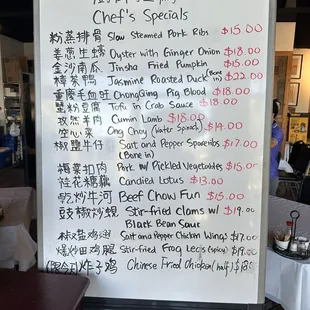 Chef's Specials
粉蒸排骨 Slow Steamed Pork Ribs $15.00
姜葱生蚝 Oyster with Ginger Onion $18.00
金沙南瓜 Jinsha Fried Pumpkin $15.00
樟茶鸭 Jasmine Roasted Duck (Bone in) $22.00
重慶毛血旺 ChongQing Pig Blood $18.00
蟹粉豆腐 Tofu in Crab Sauce $18.00
孜然羊肉 Cumin Lamb $18.00
空心菜 Ong Choy (Water Spinach) $14.00
椒鹽牛仔 Salt and Pepper Spareribs $17.00
(Bone in)
梅菜扣肉 Pork w/ Pickled Vegetables $15.00
桂花糖藕 Candied Lotus $13.00
乾炒牛河 Beef Chow Fun $15.00
豉椒炒蚬 Stir-fried Clams w/ $19.00
Black Bean Sauce
椒盐鸡翅 Salt and Pepper Chicken Wings $17.00
爆炒田鸡腿 Stir-fried Frog Legs (spicy) $19.00
炸子鸡 Chinese Fried Chicken (half)